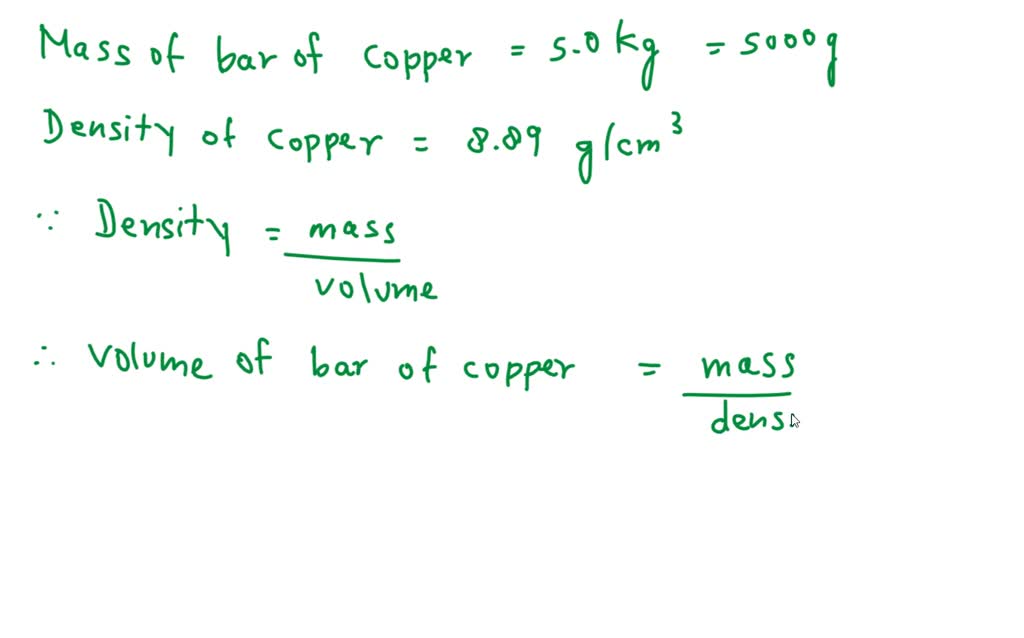 Mass of bar of copper = 5.0 kg = 5000 g
Density of copper = 8.89 g/cm³
∵ Density = mass
volume
∴ volume of bar of copper = mass
dens